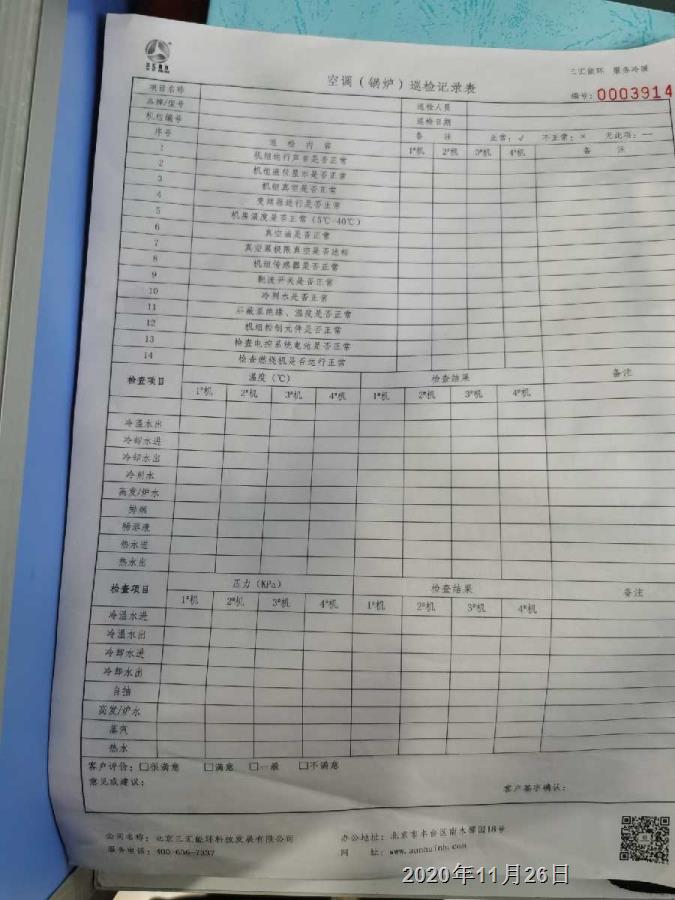 三汇能环 服务冷暖
空调（锅炉）巡检记录表
编号：0003914
项目名称
品牌/型号 巡检人员
机组编号 巡检日期
序号 巡检内容 备注 正常：√ 不正常：× 无此项：—
1#机 2#机 3#机 4#机 备注
1 机组运行声音是否正常
2 机组液位显示是否正常
3 机组真空是否正常
4 变频器运行是否正常
5 机房温度是否正常（5℃-40℃）
6 真空油是否正常
7 真空泵极限真空是否达标
8 机组传感器是否正常
9 靶流开关是否正常
10 冷剂水是否正常
11 屏蔽泵绝缘、温度是否正常
12 机组控制元件是否正常
13 检查电控系统电池是否正常
14 检查燃烧机是否运行正常
检查项目 温度（℃） 检查结果 备注
1#机 2#机 3#机 4#机 1#机 2#机 3#机 4#机
冷温水出
冷却水进
冷却水出
冷剂水
高发/炉水
排烟
稀溶液
热水进
热水出
检查项目 压力（KPa） 检查结果 备注
1#机 2#机 3#机 4#机 1#机 2#机 3#机 4#机
冷温水进
冷温水出
冷却水进
冷却水出
自抽
高发/炉水
蒸汽
热水
客户评价：□很满意 □满意 □一般 □不满意
意见或建议：
客户签字确认：
公司名称：北京三汇能环科技发展有限公司 办公地址：北京市丰台区南木樨园18号
服务电话：400-656-7337 网 址：www.sanhuinh.com
2020年11月26日